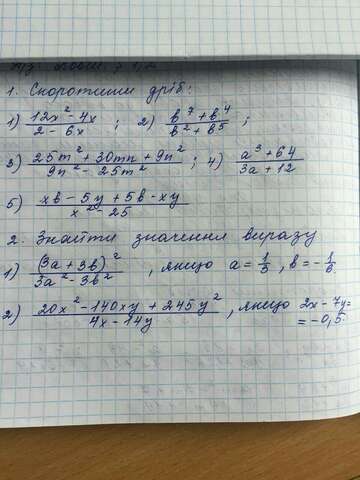 1. Скоротити дріб:
1) (12x² - 4x)/(2 - 6x) ; 2) (в⁷ + в⁴)/(в² + в⁵) ;
3) (25m² + 30mn + 9n²)/(9n² - 25m²) ; 4) (a³ + 64)/(3a + 12)
5) (xв - 5y + 5в - xy)/(x² - 25)
2. Знайти значення виразу
1) (3a + 3в)²/(3a² - 3в²) , якщо a = 1/3 , в = - 1/6.
2) (20x² - 140xy + 245y²)/(4x - 14y) , якщо 2x - 7y =
= -0,5.